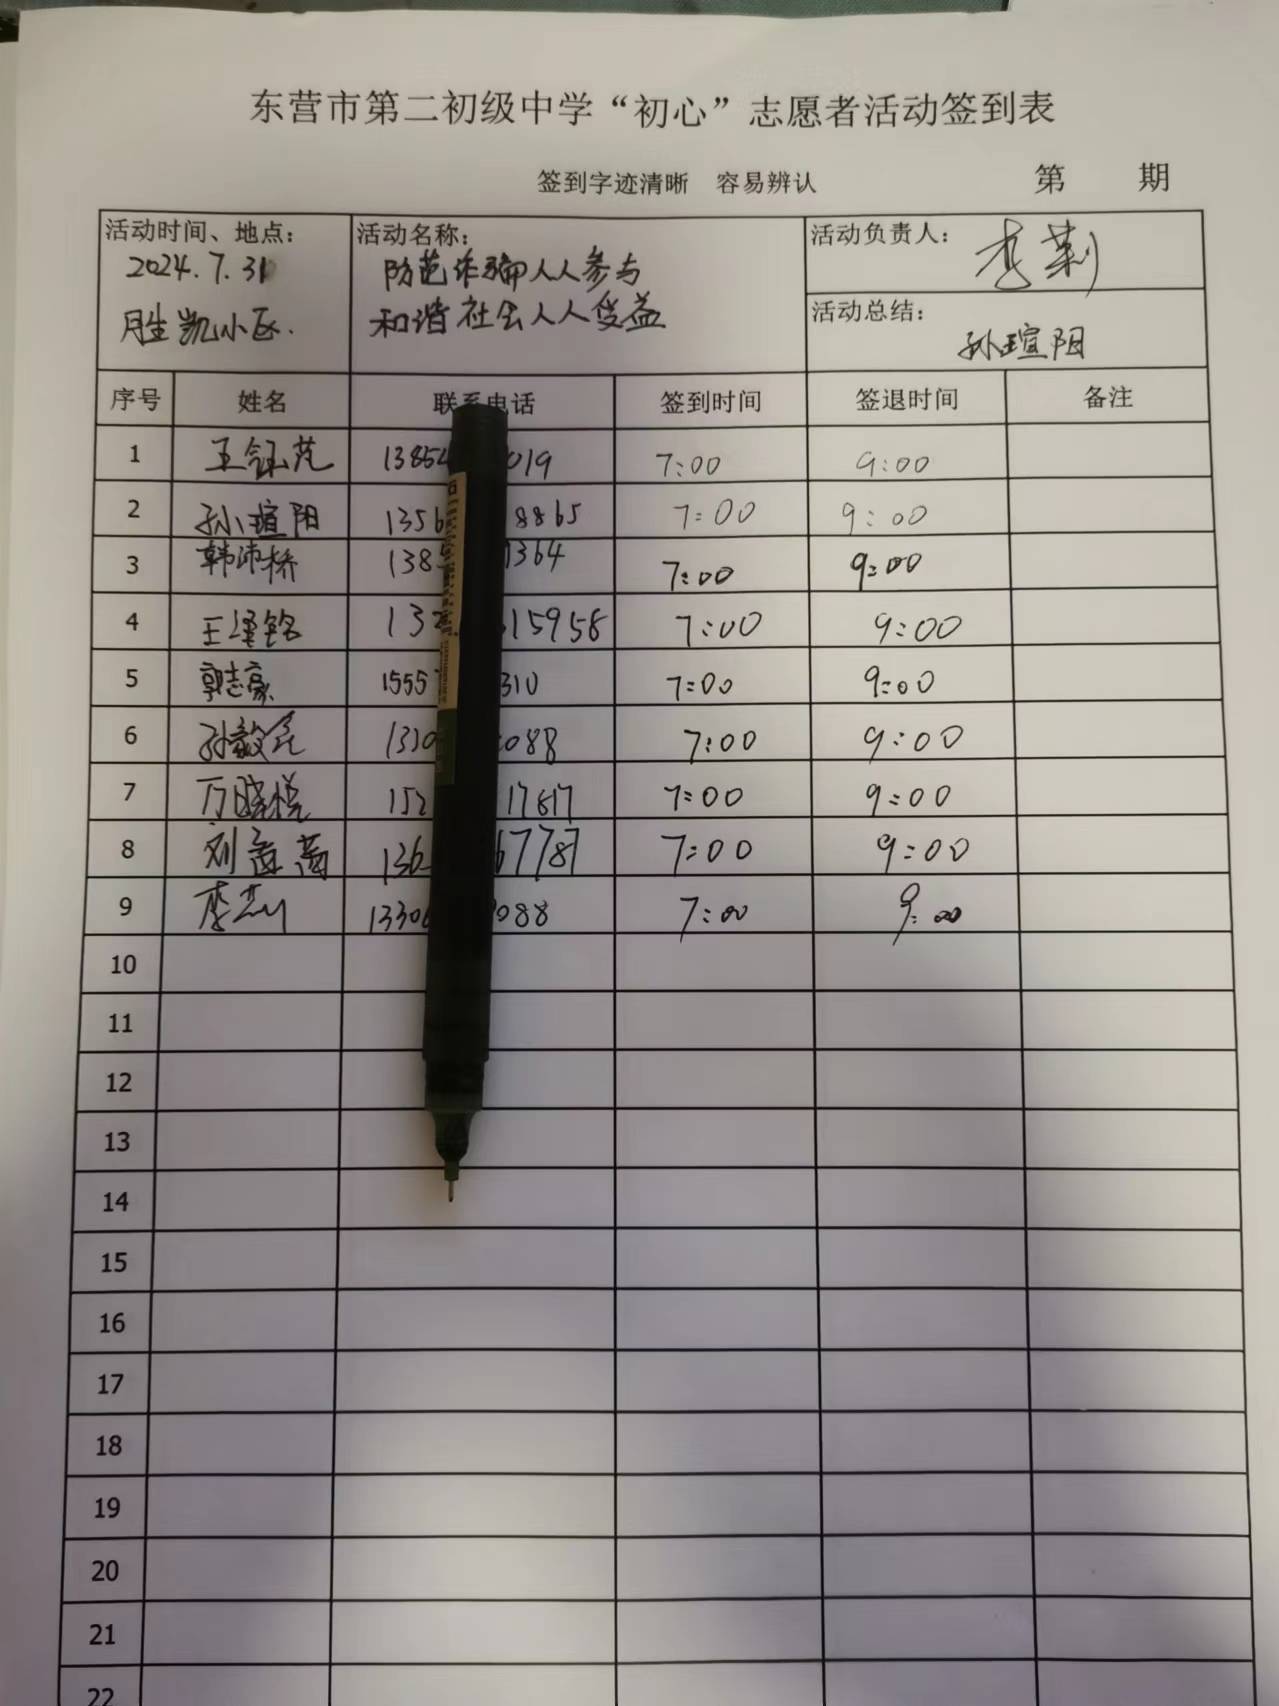 东营市第二初级中学“初心”志愿者活动签到表
签到字迹清晰 容易辨认 第 期
活动时间、地点: 活动名称: 活动负责人:
2024.7.31 防范诈骗人人参与 李莉
胜凯小区. 和谐社会人人受益 活动总结:
孙瑄阳
序号 姓名 联系电话 签到时间 签退时间 备注
1 王钰范 13854 019 7:00 9:00
2 孙瑄阳 1356 8865 7:00 9:00
3 韩沛桥 138 1364 7:00 9:00
4 王泽铭 13 15958 7:00 9:00
5 郭志豪 1555 310 7:00 9:00
6 孙毅 1330 088 7:00 9:00
7 万晓悦 152 17617 7:00 9:00
8 刘 136 67787 7:00 9:00
9 李莉 1330 088 7:00 9:00
10
11
12
13
14
15
16
17
18
19
20
21
22